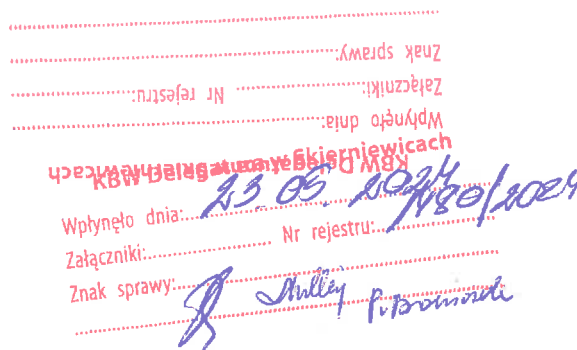 Znak sprawy:
Załączniki: Nr rejestru:
Wpłynęło dnia:
KBW Delegatura w Skierniewicach
KBW Delegatura w Skierniewicach
Wpłynęło dnia: 23.05.2024
Załączniki: Nr rejestru: /2024
Znak sprawy: